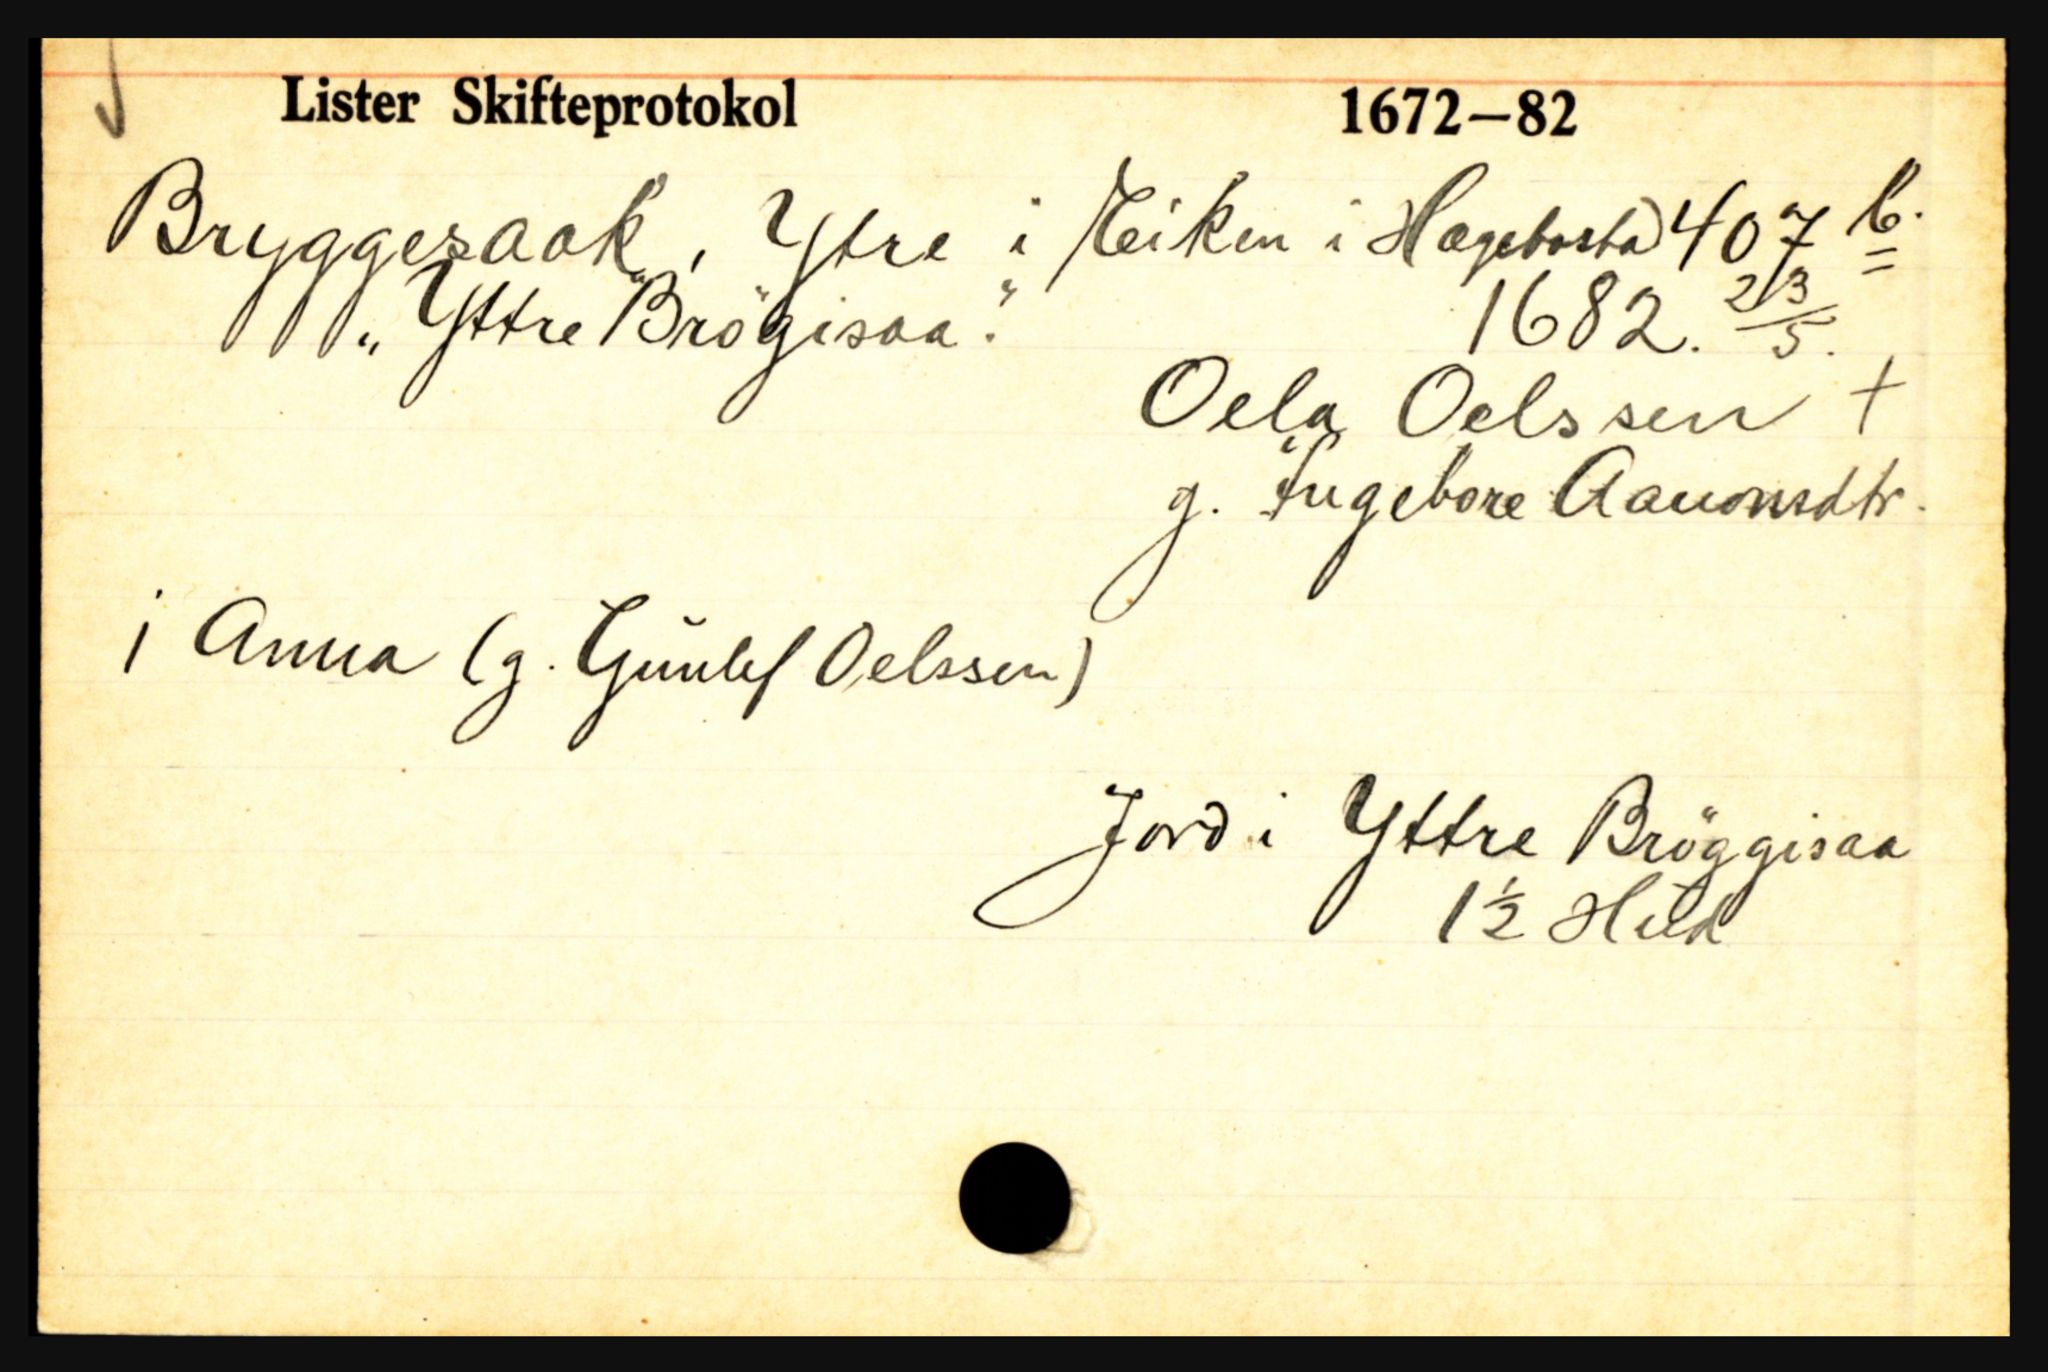 Lister Skifteprotokol 1672—82
Bryggesaak, Ytre i (Eiken i Hægebosta) 407 b.
„Yttre Brögisaa." 1682. 23/5.
Oela Oelssen +
g. Ingebore Aanonsdtr.
1 Anna (g. Gŭnlef Oelssen)
Jord i Yttre Bröggisaa
1 1/2 Hud